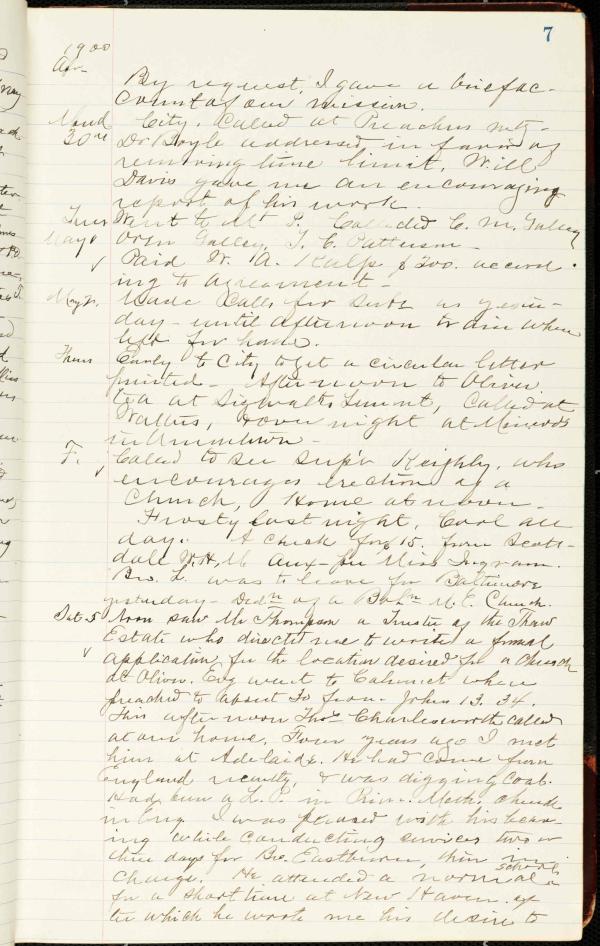 7
1900
Apr
By request, I gave a brief ac-
count of our mission.
Mond City. Called at Preachers mtg-
30th Dr Boyle addressed in favor of
removing time limit. Will
Davis gave me an encouraging
report of his work.
Tues Went to Mt P. Called C. M. Galley
May 1 Oren Galley, J. C. Patterson-
✓ Paid W. A. Kulp $200. accord-
ing to agreement-
May 2. Made calls for subs as yester-
day- until afternoon train when
left for home.
Thurs Early to City to get a circular letter
printed- Afternoon to Oliver,
tea at Summit, called at
over night at
in Uniontown-
F. Called to see Supt Keighly, who
✓ encourages erection of a
Church, Home at noon-
Frosty last night, Cool all
day. A check for $15. from Scott-
dale W.H.M. Aux- for Miss Ingram.
Bro. L. was to leave for Baltimore
yesterday- Dedn of a M.E. Church.
Sat. 5 Noon saw Mr Thompson a Trustee of the Thaw
Estate who directed me to write a formal
✓ application for the location desired for a Church
at Oliver. Evg went to Calumet where
preached to about 30 from John 13.34.
This afternoon Thos Charlesworth called
at our home. Four years ago I met
him at Adelaide. He had come from
England recently, & was digging coal.
Had been a L. P. in Prim. Meth. Church
in Eng. I was pleased with his bear-
ing while conducting services two or
three days for Bro. Eastburn, then in
charge. He attended a normal school
for a short time at New Haven, af-
ter which he wrote me his desire to